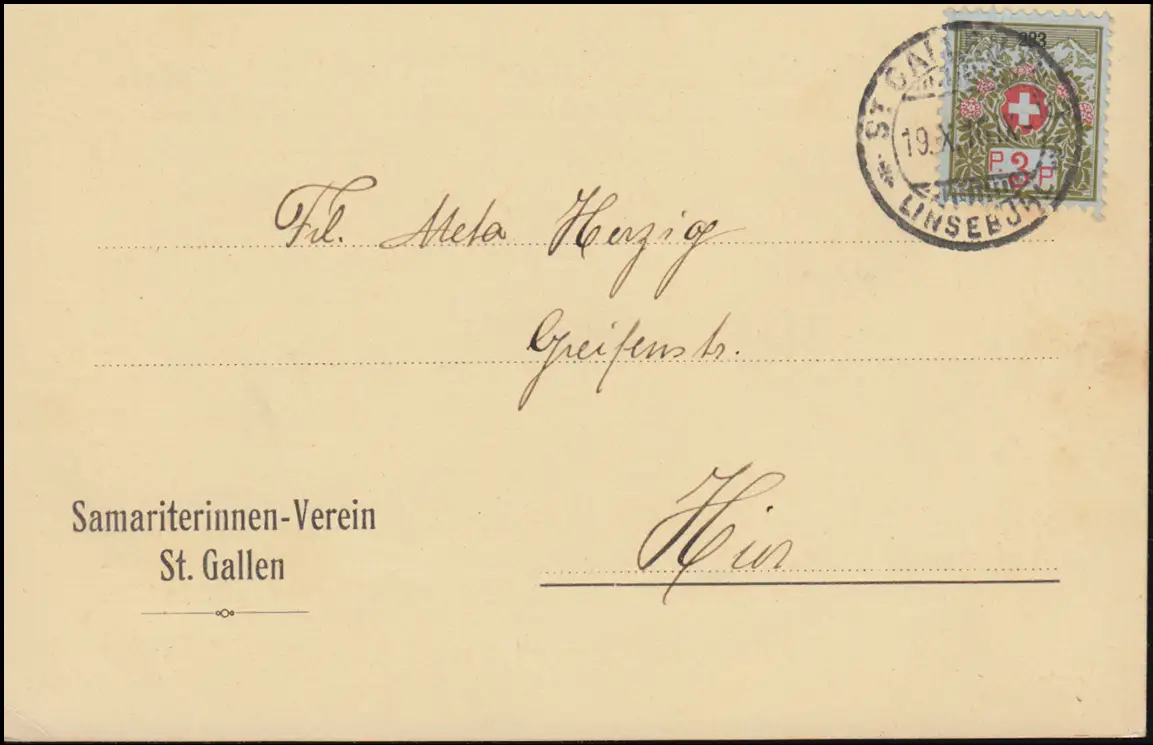 ST. GALLEN
19.X.
LINSEBÜHL
P 3 P
Frl. Meta Herzig
Greifenstr.
Samariterinnen-Verein
St. Gallen
Hier